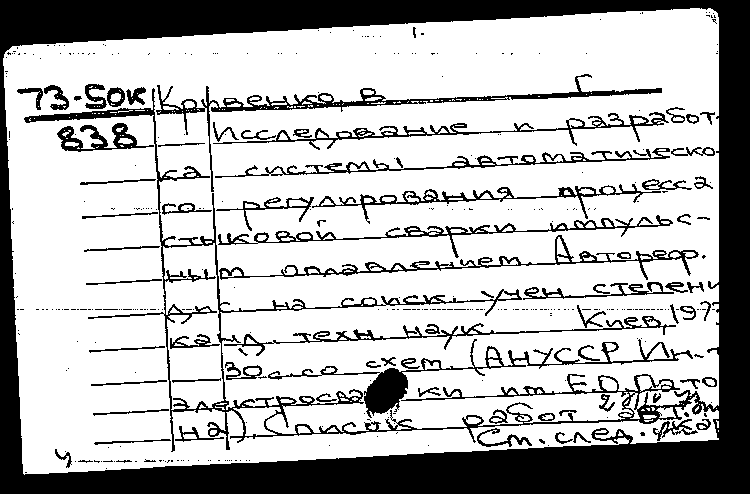 1.
73-50к Кривенко, В Г
838 Исследование и разработ-
ка системы автоматическо-
го регулирования процесса
стыковой сварки импульс-
ным оплавлением. Автореф.
дис. на соиск. учен степени
канд. техн. наук. Киев, 197
30с. со схем. (АНУССР Ин-т
электросва ки им. Е.О. Пато
на). Список работ
См. след.